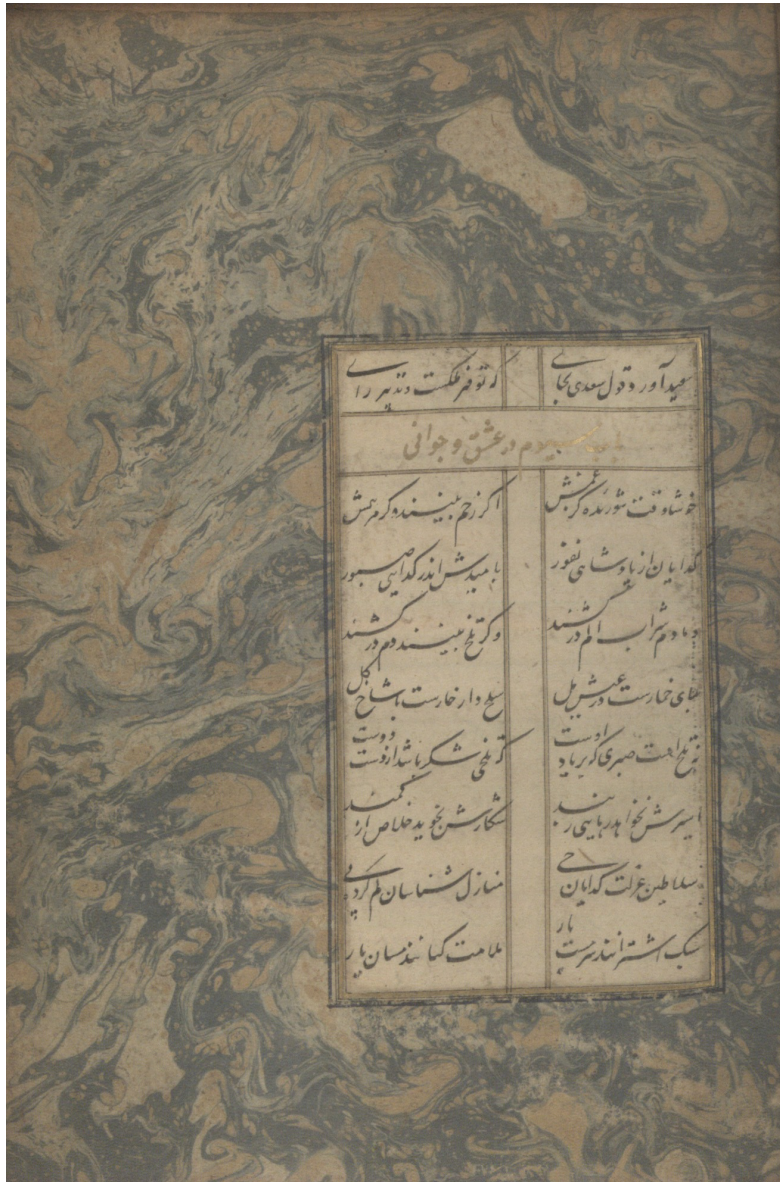 مفید آورد قول سعدی بجای
که توفیر ملکست و تدبیر رای
باب سیوم در عشق و جوانی
خوشا وقت شوریده کر غمش
اگر زخم بینند و گر مرهمش
گدایان از پادشاهی نفور
بامیدش اندر گدایی صبور
دمادم شراب الم درکشند
وگر تلخ بینند دم درکشند
بلای خمارست در عیش مل
سلحدار خارست با شاخ گل
نه تلخ است صبری که بر یاد اوست
که تلخی شکر باشد از دست دوست
اسیرش نخواهد رهایی ز بند
شکارش نجوید خلاص از کمند
سلاطین عزلت گدایان حی
منازل شناسان گم کرده پی
سبک اشتر انند سرمست بار
ملامت کنانند مسان یار